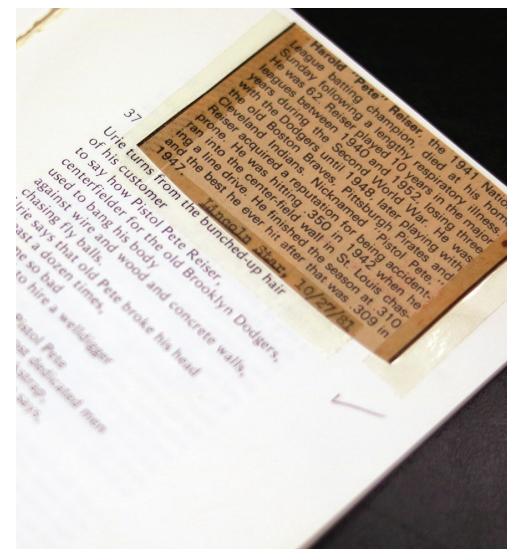 Harold "Pete" Reiser, the 1941 Natio
League batting champion, died at his hom
Sunday following a lengthy respiratory illness.
He was 62. Reiser played 10 years in the major
leagues between 1940 and 1952, losing three
years during the Second World War. He was
with the Dodgers until 1948 later playing with
the old Boston Braves, Pittsburgh Pirates and
Cleveland Indians. Nicknamed "Pistol Pete,"
Reiser acquired a reputation for being accident-
prone. He was hitting .350 in 1942 when he
ran into the center-field wall in St. Louis chas-
ing a line drive. He finished the season at .310
and the best he ever hit after that was .309 in
1947.
Lincoln Star, 10/27/81
37
Urie turns from the bunched-up hair
of his customer
to say how Pistol Pete Reiser,
centerfielder for the old Brooklyn Dodgers,
used to bang his body
against wire and wood and concrete walls,
chasing fly balls.
rie says that old Pete broke his head
ast a dozen times,
ne so bad
to hire a welldigger
Pistol Pete
dedicated men
says.